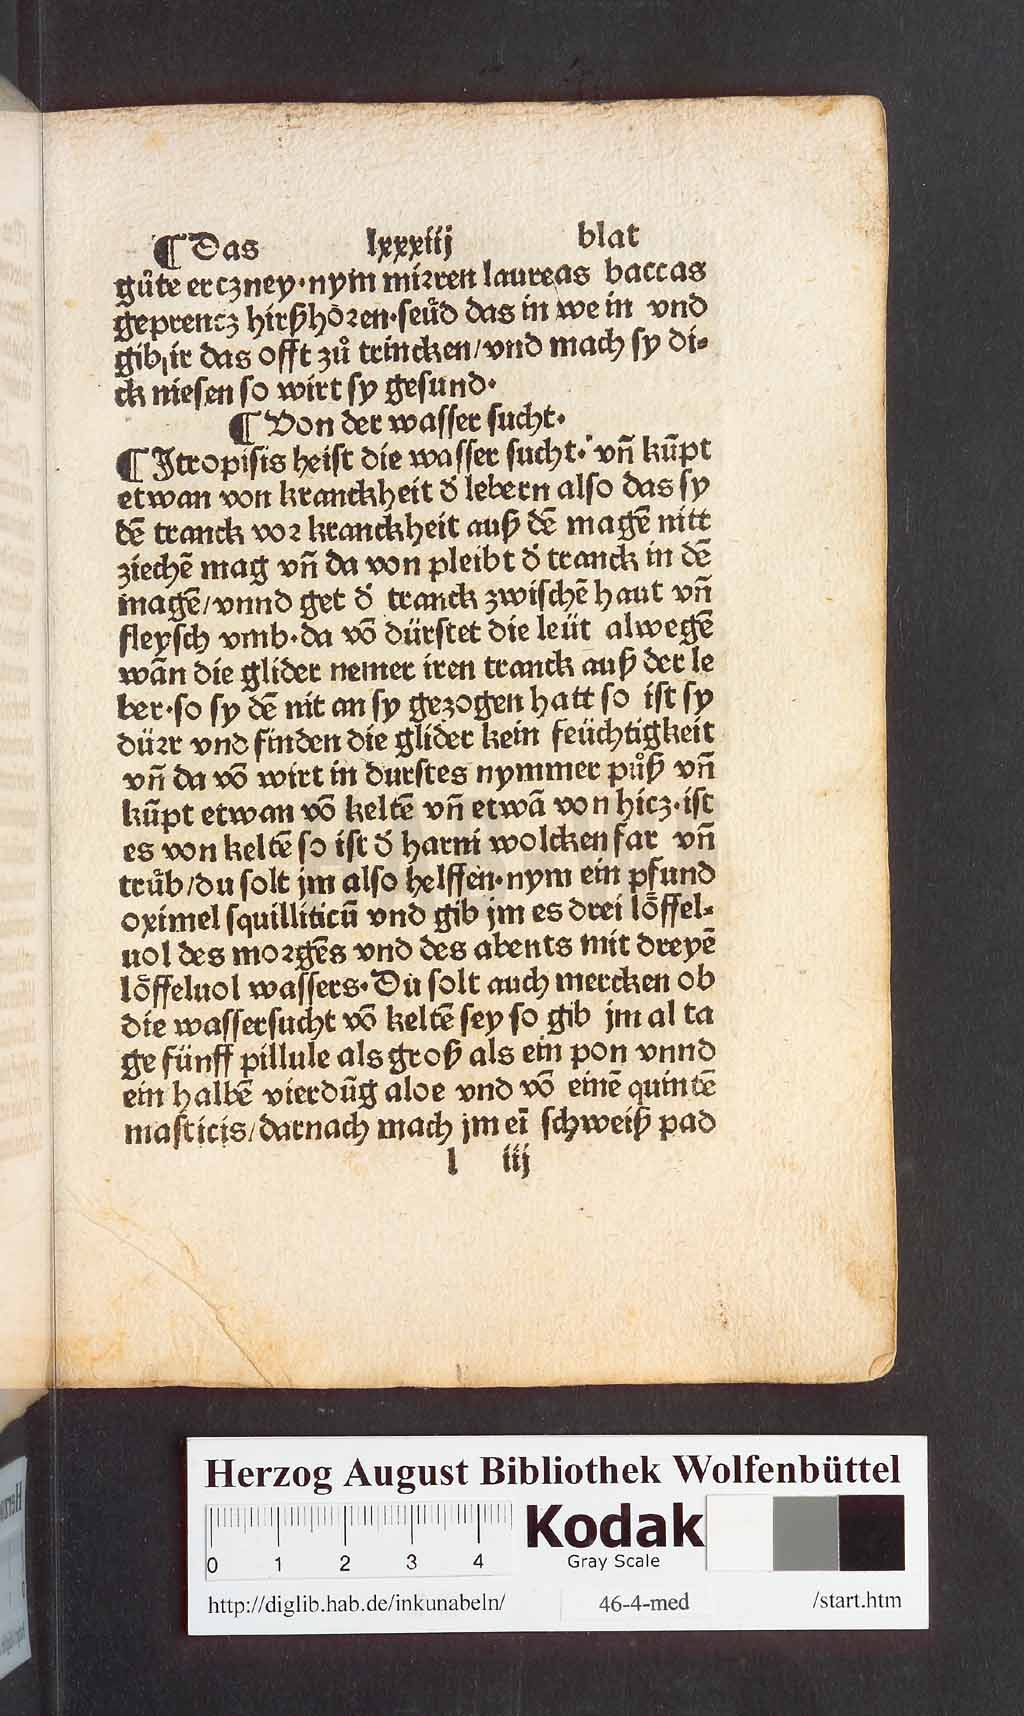 ¶ Das lxxxiij blat
gůte erczney·nym mirren laureas baccas
geprentz hirßhören·seüd das in we in vnd
gib ir das offt zů trincken/vnd mach sy di⸗
ck niesen so wirt sy gesund·
¶ Von der wasser sucht·
¶ Itropisis heist die wasser sucht· vñ kūpt
etwan von kranckheit d̕ lebern also das sy
dē tranck vor kranckheit auß dē magē nitt
ziechē mag vñ da von pleibt d̕ tranck in dē
magē/vnnd get d̕ tranck zwischē haut vñ
fleysch vmb·da vō dürstet die leüt alwegē
wān die glider nemer iren tranck auß der le
ber·so sy dē nit an sy gezogen hatt so ist sy
dürr vnd finden die glider kein feüchtigkeit
vñ da vō wirt in durstes nymmer půß vñ
kūpt etwan vō keltē vñ etwā von hicz·ist
es von keltē so ist d̕ harni wolcken far vñ
trüb/du solt jm also helffen·nym ein pfund
oximel squilliticū vnd gib jm es drei löffel⸗
uol des morgēs vnd des abents mit dreyē
löffeluol wassers·Du solt auch mercken ob
die wassersucht vō keltē sey so gib jm al ta
ge fünff pillule als groß als ein pon vnnd
ein halbē vierdūg aloe vnd vō einē quintē
masticis/darnach mach jm eī schweiß pad
l iij
Herzog August Bibliothek Wolfenbüttel
0 1 2 3 4
Kodak
Gray Scale
http://diglib.hab.de/inkunabeln/ 46-4-med /start.htm